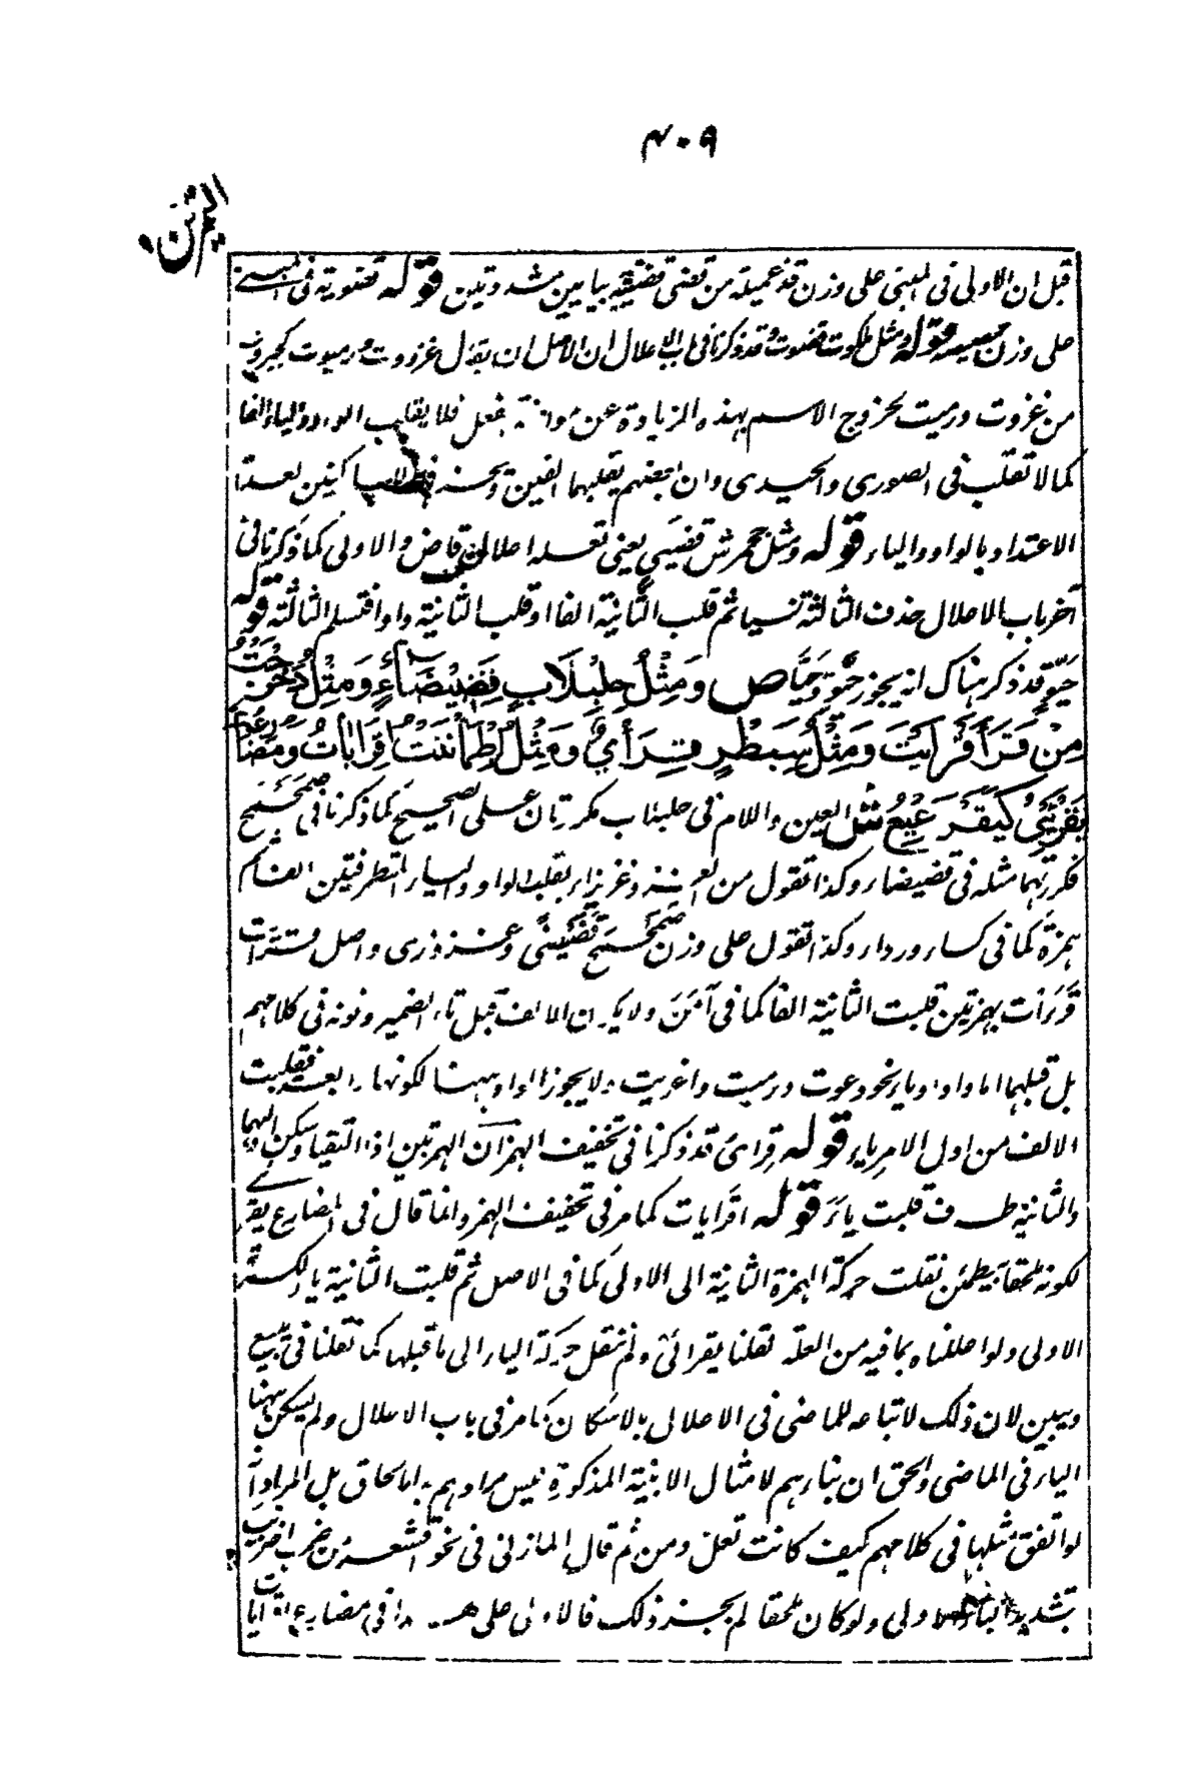 ٤٠٩
التمرين
قبل ان الاولى فى المبنى على وزن قذعميلة من قضى قضيية بيايين مشددتين قوله قضوية فى المبنى
على وزن حمصيصة وقوله ومثل ملكوت قضوت وقد ذكرنا فى باب الاعلال ان الاصل ان يقال غزووت ورميوت كجبروت
من غزوت ورميت لخروج الاسم بهذه الزيادة عن موازنة الفعل فلا يقلب الواو والياء الفا
كما لا تقلب فى الصورى والحيدى وان بعضهم يقلبهما الفين ويحذفهما للساكنين لعدم
الاعتداد بالواو والياء قوله ومثل جحمرش قضيى يعنى تعله اعلال قاض والاولى كما ذكرنا فى
آخر باب الاعلال حذف الثالثة نسيا ثم قلب الثانية الفا او قلب الثانية واوا فتسلم الثالثة قوله
حيو قد ذكر هناك انه يجوز حيو وحيا ص ومثل حلبلاب قضيضاء ومثل دحرجت
من قرأ قرأيت ومثل سبطر قرأي ومثل اطمأننت اقرأيأت ومضارعه
يقرئيئ كيقرعيع ش العين واللام فى حلبلاب مكررتان على الصحيح كما ذكرنا فى صمحمح
فكررتهما مثله فى قضيضاء وكذا تقول من الغزو غزيزاء بقلب الواو والياء المتطرفتين الفا ثم
همزة كما فى كساء ورداء وكذا تقول على وزن صمحمح قضيضى وغزوزى واصل قرأيت
قرأأت بهمزتين قلبت الثانية الفا كما فى آمن ولا يكون الالف قبل تاء الضمير ونونه فى كلامهم
بل قبلهما اما واو او ياء نحو دعوت ورميت واغزيت ولا يجوز الواو ههنا لكونها رابعة فقلبت
الالف من اول الامر ياء قوله قرأى قد ذكرنا فى تخفيف الهمز ان الهمزتين اذا التقيا وسكن اولهما
والثانية طرف قلبت ياء قوله اقرأيأت كما مر فى تخفيف الهمز وانما قال فى المضارع يقرئيئ
لكونه ملحقا بيطمئن نقلت حركة الهمزة الثانية الى الاولى كما فى الاصل ثم قلبت الثانية ياء لكسرة
الاولى ولو اعللناه بما فيه من العلة لقلنا يقرائى ولم ننقل حركة الياء الى ما قبلها كما نقلنا فى يبيع
ويبين لان ذلك لاتباعه للماضى فى الاعلال بالاسكان كما مر فى باب الاعلال ولم يسكن ههنا
الياء فى الماضى والحق ان بناءهم لامثال الابنية المذكورة ليس مرادهم به الالحاق بل المراد انه
لو اتفق مثلها فى كلامهم كيف كانت تعل ومن ثم قال المازنى فى نحو اقشعر من ضرب اضربب
بتشديد الباء الاولى ولو كان ملحقا لم يجز ذلك فالاولى على هذا فى مضارع اقرأيأت